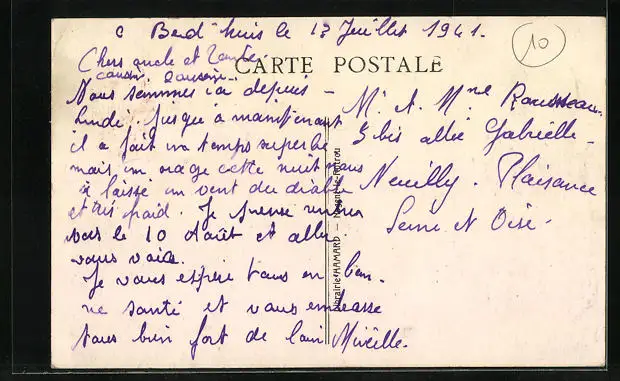 Bed'huis le 13 Juillet 1941.
10
Chers oncle et Tante
cousin. Cousine.
CARTE POSTALE
Nous sommes ici depuis
lundi. Jusqu'à maintenant
il a fait un temps superbe
mais un orage cette nuit nous
a laissé un vent du diable
et très froid. Je pense
vers le 10 Août et aller
vous voir.
Je vous espère tous en bon-
ne santé et vous embrasse
tous bien fort de loin Mireille.
Mr et Mme Rousseau
5 bis allée Gabrielle
Neuilly. Plaisance
Seine et Oise.
Librairie HAMARD — Nogent-le-Rotrou